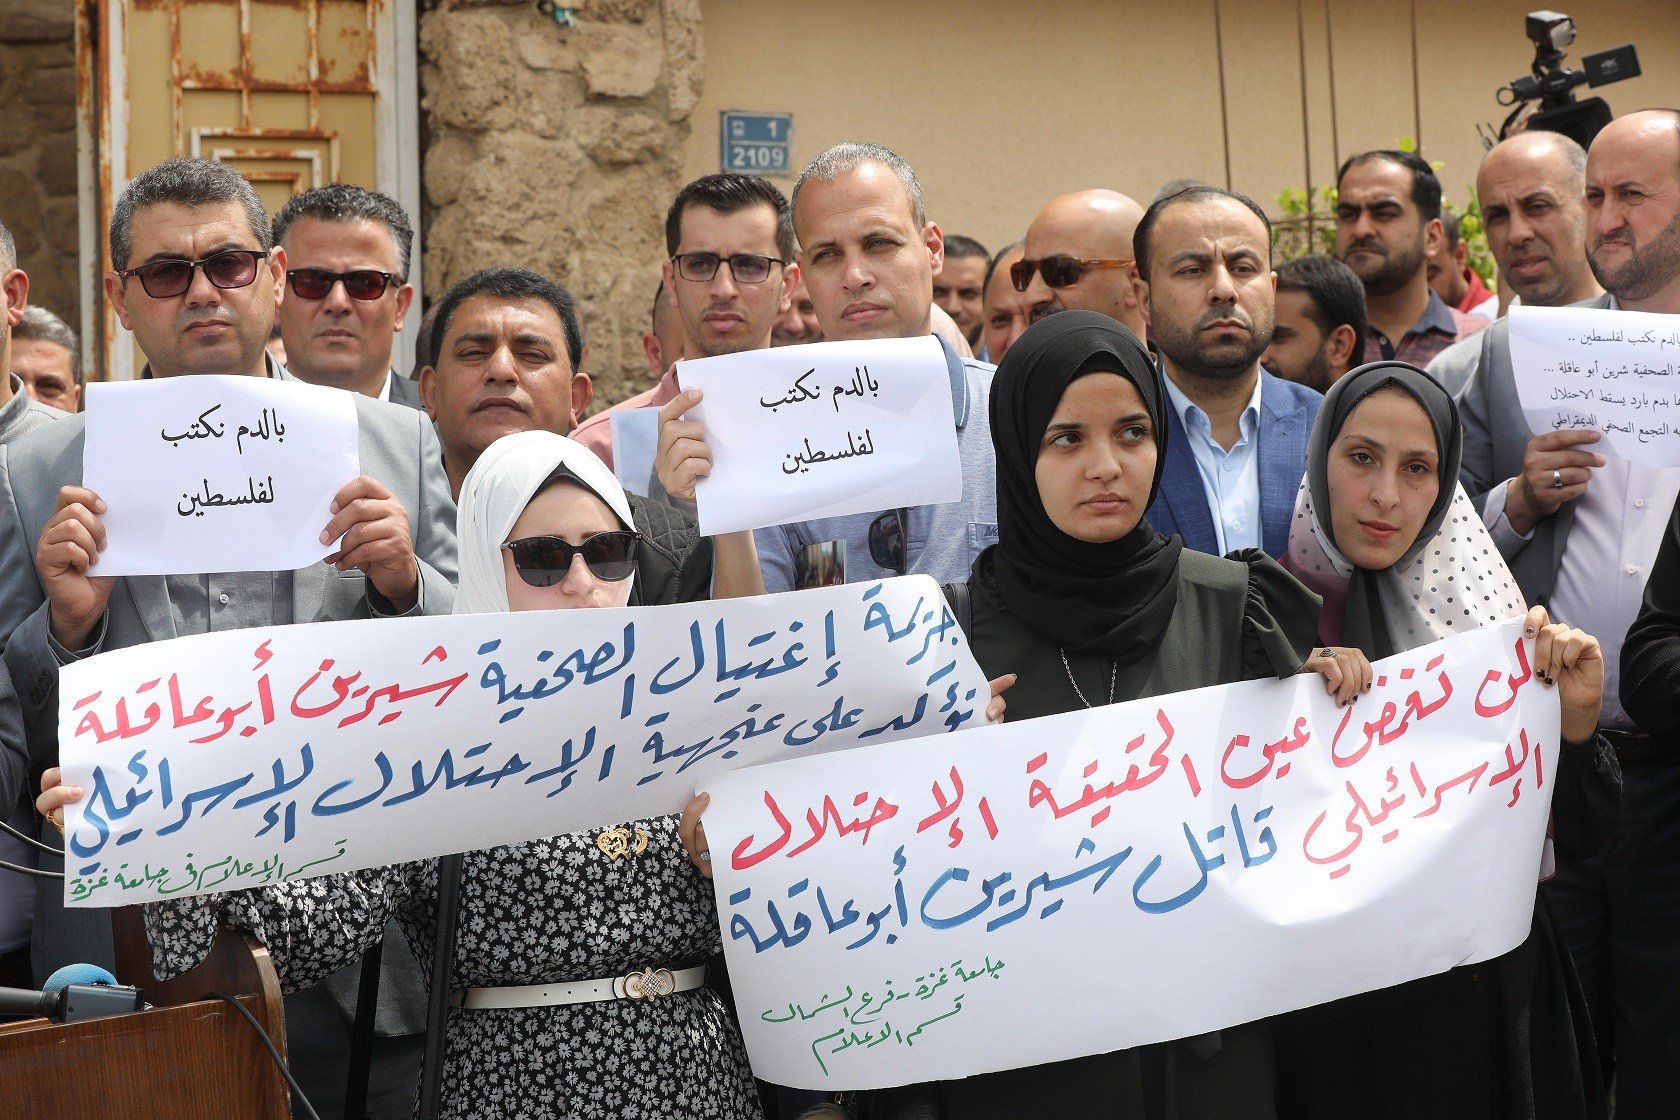 1
2109
بالدم نكتب
لفلسطين
بالدم نكتب
لفلسطين
بالدم نكتب لفلسطين ..
الصحفية شرين أبو عاقلة ...
بدم بارد يسقط الاحتلال
التجمع الصحفي الديمقراطي
جريمة إغتيال الصحفية شيرين أبو عاقلة
تؤكد على عنجهية الإحتلال الإسرائيلي
قسم الإعلام في جامعة غزة
لن تغمض عين الحقيقة الإحتلال
الإسرائيلي قاتل شيرين أبو عاقلة
جامعة غزة - فرع الشمال
قسم الاعلام
4K